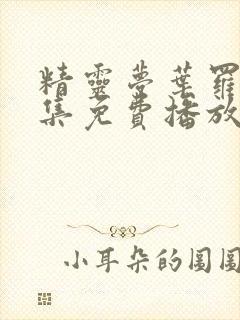 精靈夢葉羅
集免費播放
小耳朵的圖圖